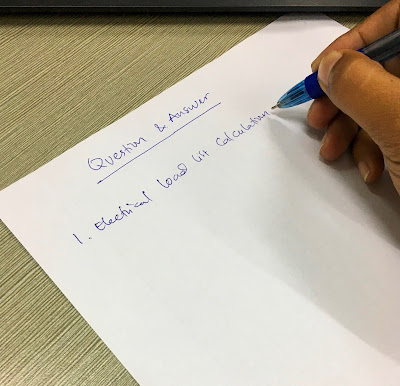 Question & Answer
1. Electrical load list Calculation